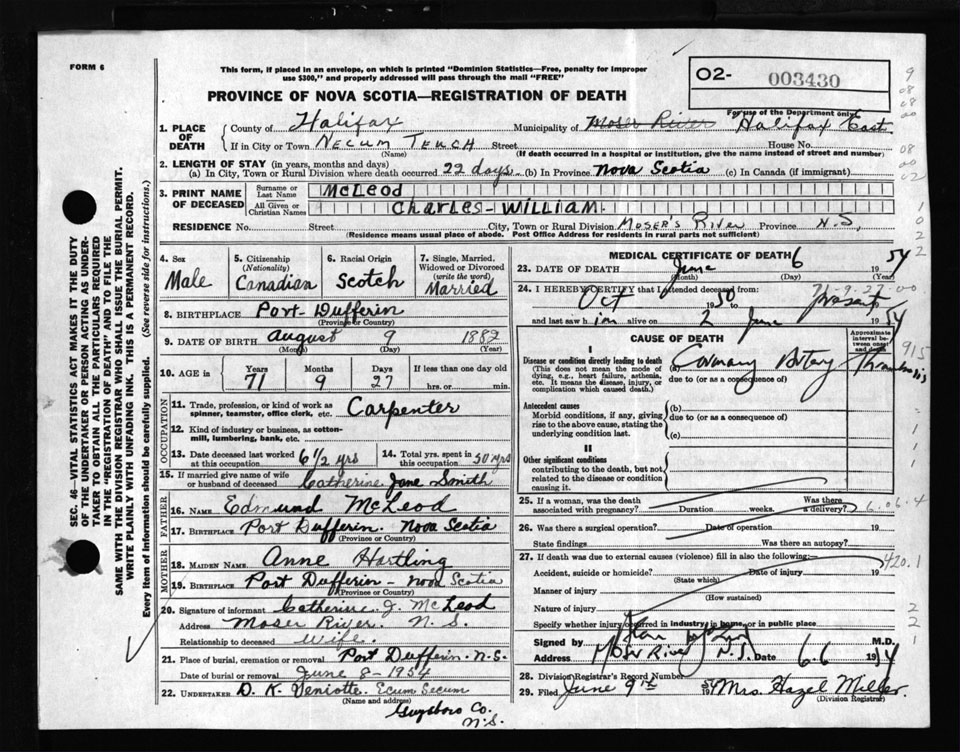 FORM 6
This form, if placed in an envelope, on which is printed "Dominion Statistics—Free, penalty for improper
use $300," and properly addressed will pass through the mail "FREE"
O2- 003430
PROVINCE OF NOVA SCOTIA—REGISTRATION OF DEATH
For use of the Department only
1. PLACE OF DEATH
County of Halifax Municipality of Moser River Halifax East
If in City or Town Necum Teuch Street House No.
(Name) (If death occurred in a hospital or institution, give the name instead of street and number)
2. LENGTH OF STAY (in years, months and days)
(a) In City, Town or Rural Division where death occurred 22 days (b) In Province Nova Scotia (c) In Canada (if immigrant)
3. PRINT NAME OF DECEASED
Surname or Last Name McLeod
All Given or Christian Names Charles - William.
RESIDENCE No. Street City, Town or Rural Division Moser's River Province N.S.
(Residence means usual place of abode. Post Office Address for residents in rural parts not sufficient)
4. Sex Male
5. Citizenship (Nationality) Canadian
6. Racial Origin Scotch
7. Single, Married, Widowed or Divorced (write the word) Married
8. BIRTHPLACE Port-Dufferin
(Province or Country)
9. DATE OF BIRTH August 9 1882
(Month) (Day) (Year)
10. AGE in Years 71 Months 9 Days 27 If less than one day old hrs. or min.
OCCUPATION
11. Trade, profession, or kind of work as spinner, teamster, office clerk, etc. Carpenter
12. Kind of industry or business, as cotton-mill, lumbering, bank, etc.
13. Date deceased last worked at this occupation 6 1/2 yrs
14. Total yrs. spent in this occupation 50 yrs
15. If married give name of wife or husband of deceased Catherine Jane Smith
FATHER
16. NAME Edmund McLeod
17. BIRTHPLACE Port Dufferin. Nova Scotia
(Province or Country)
MOTHER
18. MAIDEN NAME Anne Hartling
19. BIRTHPLACE Port Dufferin - Nova Scotia
(Province or Country)
20. Signature of informant Catherine J. McLeod
Address Moser River. N.S.
Relationship to deceased wife.
21. Place of burial, cremation or removal Port Dufferin. N.S.
Date of burial or removal June 8-1954
22. UNDERTAKER D. K. Veniotte. Ecum Secum
(Name and address)
Guysboro Co. N.S.
MEDICAL CERTIFICATE OF DEATH
23. DATE OF DEATH June 6 1954
(Month) (Day)
24. I HEREBY CERTIFY that I attended deceased from 71-9-27-00
Oct 1950 to present 19
and last saw him alive on 2 June 1954
CAUSE OF DEATH
Approximate interval between onset and death
I
Disease or condition directly leading to death (This does not mean the mode of dying, e.g., heart failure, asthenia, etc. It means the disease, injury, or complication which caused death.)
(a) Coronary Artery Thrombosis
due to (or as a consequence of)
Antecedent causes
Morbid conditions, if any, giving rise to the above cause, stating the underlying condition last.
(b)
due to (or as a consequence of)
(c)
II
Other significant conditions contributing to the death, but not related to the disease or condition causing it.
25. If a woman, was the death associated with pregnancy? Duration weeks. Was there a delivery?
26. Was there a surgical operation? Date of operation
State findings Was there an autopsy?
27. If death was due to external causes (violence) fill in also the following:
Accident, suicide or homicide? Date of injury 19
(State which)
Manner of injury
(How sustained)
Nature of injury
Specify whether injury occurred in industry in home, or in public place
Signed by M.D.
Address Moser River N.S. Date 6.6 1954
28. Division Registrar's Record Number
29. Filed June 9th 1954 Mrs. Hazel Miller.
(Division Registrar)
SEC. 46—VITAL STATISTICS ACT MAKES IT THE DUTY
OF THE UNDERTAKER OR PERSON ACTING AS UNDER-
TAKER TO OBTAIN ALL THE PARTICULARS REQUIRED
IN THE "REGISTRATION OF DEATH" AND TO FILE THE
SAME WITH THE DIVISION REGISTRAR WHO SHALL ISSUE THE BURIAL PERMIT.
WRITE PLAINLY WITH UNFADING INK. THIS IS A PERMANENT RECORD.
Every item of information should be carefully supplied. (See reverse side for instructions.)
9
08
08
00
08
00
02
1
0
2
2
915
1
1
1
6.06.4
420.1
2
2
1